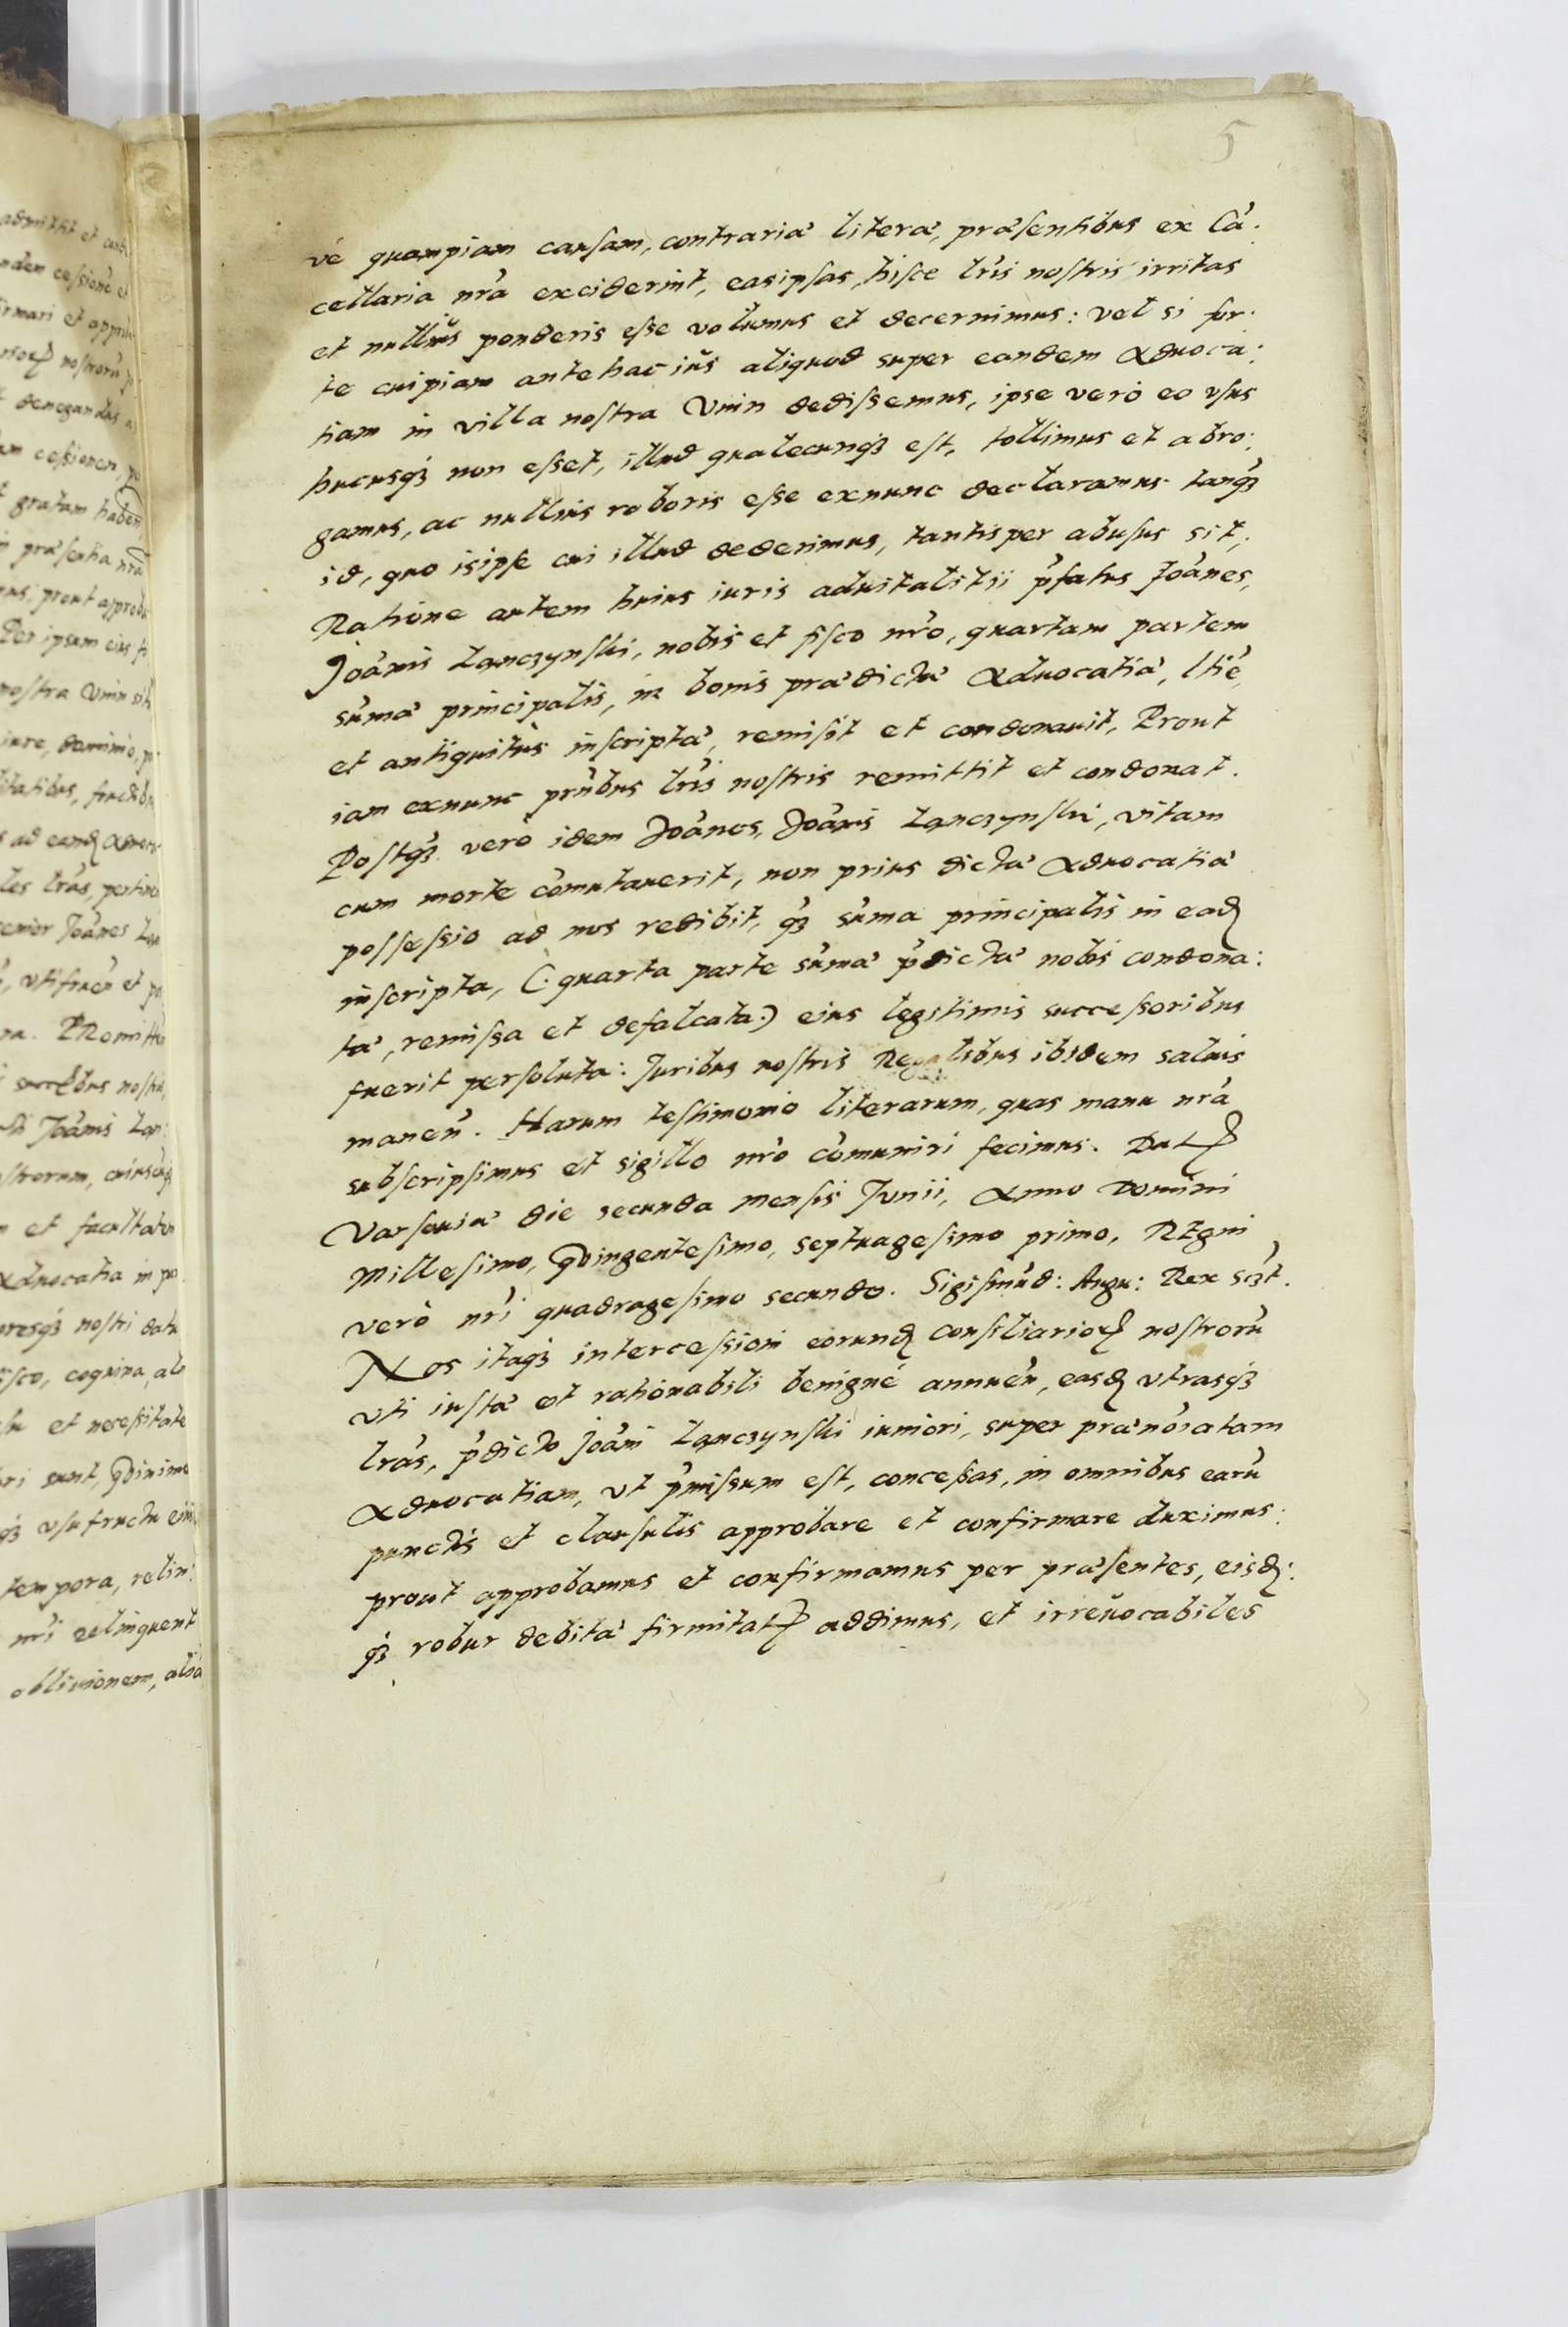 5
vé quampiam causam, contrariæ literæ, præsentibus ex Cā:
cellaria nr̃a exciderint, easipsas, hisce lr̃is nostris irritas
et nullius ponderis esse volumus et decernimus: vel si for:
te cuipiam antehac iŭs aliquod super eandem Aduoca:
tiam in villa nostra Vnin dedissemus, ipse verò eo vsus
hucusq3 non esset, illud qualecunq3 est, tollimus et abro:
gamus, ac nullius roboris esse exnunc declaramus tanq̃3
id, quo isipse cui illud dederimus, tantisper abusus sit,
Ratione autem huius iuris aduitalitii p̃fatus Joānes,
Joānis Lanczynski, nobis et fisco nr̃o, quartam partem
sūmæ principalis, in bonis prædictæ Aduocatiæ, ltiē,
et antiquitùs inscriptæ, remisit et condonauit, Prout
iam exnunc pr̃ñbus lr̃is nostris remittit et condonat.
Postq̃3 verò idem Joānes, Joānis Lanczynski, vitam
cum morte cōmutauerit, non prius dictæ Aduocatiæ
possessio ad nos redibit, q̃3 sūma principalis in ead
inscripta, (: quarta parte sūmæ p̃dictæ nobis condona:
ta, remissa et defalcata:) eius legitimis successoribus
fuerit persoluta: Juribus nostris Regalibus ibidem saluis
maneñ. Harum testimonio literarum, quas manu nr̃a
subscripsimus et sigillo nr̃o cōmuniri fecimus. Dat
Varsauiæ die secunda mensis Junii, Anno Domini
Millesimo, Quingentesimo, septuagesimo primo, REgni
verò nr̃i quadragesimo secundo. Sigismūd: Augu: Rex sc3t.
Nos itaq3 intercessioni eorund consiliarioꝝ nostrorū
vti iustæ et rationabili benignè annueñ, easd vtrasq3
lr̃as, p̃dicto Joāni Lanczynski iuniori, super prænoīatam
Aduocatiam, vt p̃missum est, concessas, in omnibus earū
punctis et clausulis approbare et confirmare duximus:
prout approbamus et confirmamus per præsentes, eisd:
q3 robur debitæ firmitatꝭ addimus, et irreuocabiles